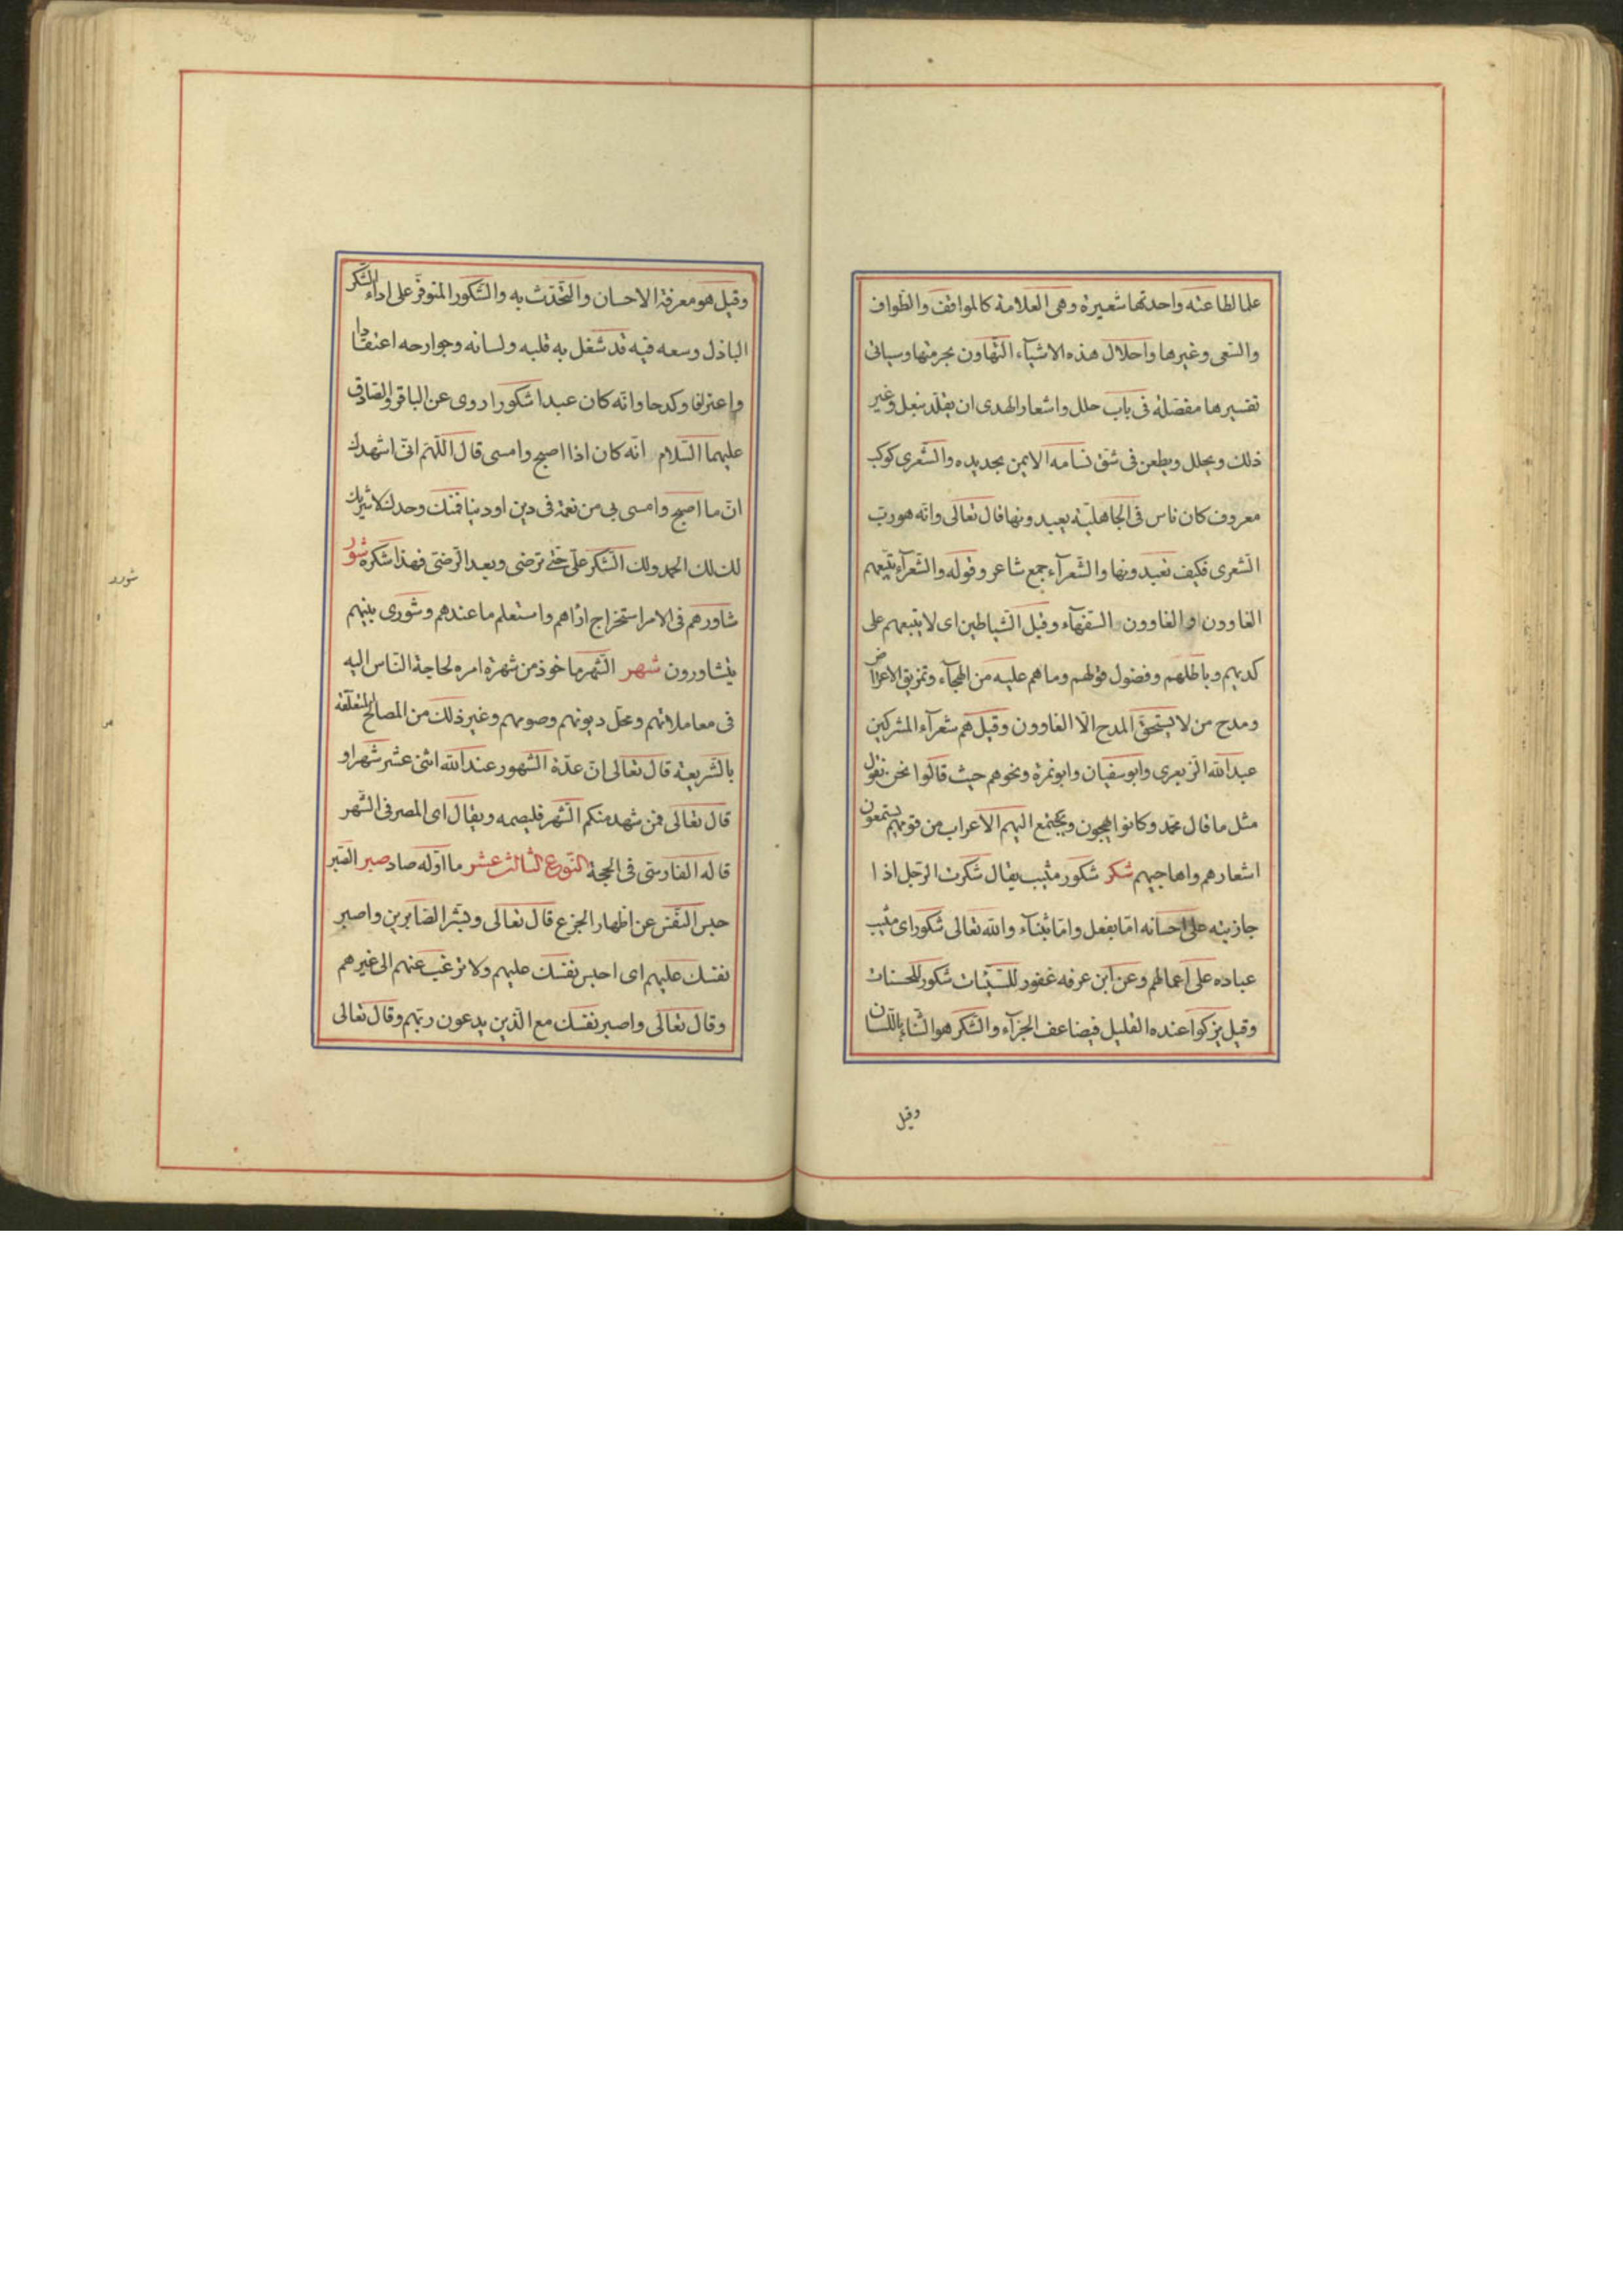 علما لطاعته واحدتها شعيرة وهى العلامة كالمواقف والطواف
والسّعى وغيرها واحلال هذه الاشيآء التهاون بحرمتها وسياتى
تفسيرها مفصّلة فى باب حلل واشعار الهدى ان يقلّد بنعل وغير
ذلك ويجلل ويطعن فى شق سنامه الايمن بحديده والشّعرى كوكب
معروف كان ناس فى الجاهليّة يعبدونها قال تعالى وانّه هو ربّ
الشّعرى فكيف تعبدونها والشّعرآء جمع شاعر وقوله والشّعرآء يتّبعهم
الغاوون و الغاوون السّفهآء وقيل الشّياطين اى لا يتبعهم على
كذبهم وباطلهم وفضول قولهم وما هم عليه من الهجآء وتمزيق الاعراض
ومدح من لا يستحقّ المدح الّا الغاوون وقيل هم شعرآء المشركين
عبد الله الزبعرى وابو سفيان وابو نمرة ونحوهم حيث قالوا نحن نقول
مثل ما قال محمّد وكانوا يهجون ويجتمع اليهم الاعراب من قومهم يستمعون
اشعارهم واهاجيهم شكر شكور مثيب يقال شكرت الرّجل اذا
جازيته على احسانه امّا بفعل وامّا بثناء والله تعالى شكور اى مثيب
عباده على اعمالهم وعن ابن عرفه غفور للسّيّئات شكور للحسنات
وقيل يزكوا عنده القليل فيضاعف الجزآء والشّكر هو الثّناء باللّسان
وقيل
وقيل هو معرفة الاحسان والتّحدّث به والشّكور المتوفّر على اداء الشّكر
الباذل وسعه فيه قد شغل به قلبه ولسانه وجوارحه اعتقادا
واعترافا وكدحا وانّه كان عبدا شكورا روى عن الباقر والصّادق
عليهما السّلام انّه كان اذا اصبح وامسى قال اللّهمّ انّى اشهدك
انّ ما اصبح وامسى بى من نعمة فى دين او دينا فمنك وحدك لا شريك
لك لك الحمد ولك الشّكر علىّ حتّى ترضى وبعد الرّضى فهذا شكره شور
شاورهم فى الامر استخراج ارٰاهم واستعلم ما عندهم وشورى بينهم
يتشاورون شهر الشّهر ماخوذ من شهرة امره لحاجة النّاس اليه
فى معاملاتهم ومحلّ ديونهم وصومهم وغير ذلك من المصالح المتعلّقة
بالشّريعة قال تعالى انّ عدّة الشّهور عند الله اثنى عشر شهرا و
قال تعالى فمن شهد منكم الشّهر فليصمه ويقال اى المصر فى الشّهر
قاله الفارسّى فى الحجة النّوع الثالث عشر ما اوّله صاد صبر الصّبر
حبس النّفس عن اظهار الجزع قال تعالى وبشّر الصّابرين واصبر
نفسك عليهم اى احبس نفسك عليهم ولا ترغب عنهم الى غيرهم
وقال تعالى واصبر نفسك مع الّذين يدعون ربّهم وقال تعالى